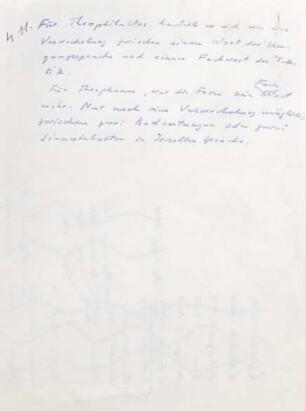 Für Theophilaktes handelt es sich um eine
Verwechslung zwischen einem Wort der Um-
gangssprache und einem Fachwort der
Für Theophanes, war die Form kein Fach Wort
mehr. Nur noch eine Verwechslung möglich,
zwischen zwei Bedeutungen oder zwei
Sinneinheiten in derselben Sprache.